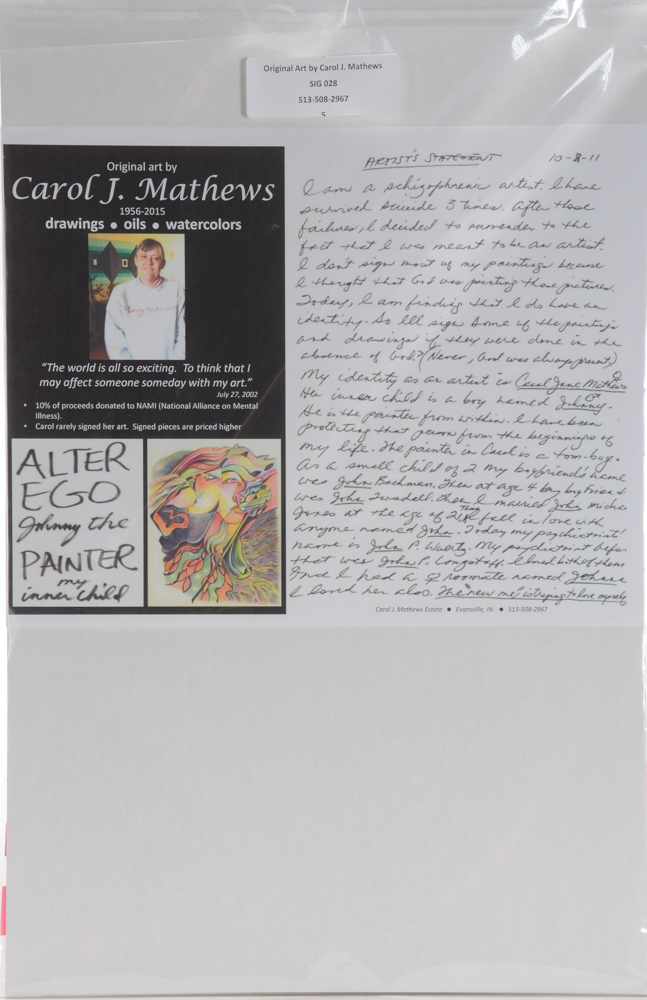 Original Art by Carol J. Mathews
SIG 028
513-508-2967
Original art by
Carol J. Mathews
1956-2015
drawings • oils • watercolors
“The world is all so exciting. To think that I
may affect someone someday with my art.”
July 27, 2002
• 10% of proceeds donated to NAMI (National Alliance on Mental
Illness).
• Carol rarely signed her art. Signed pieces are priced higher
ALTER
EGO
Johnny the
PAINTER
my
inner child
ARTIST'S STATEMENT 10-8-11
I am a schizophrenic artist. I have
survived suicide 3 times. After those
failures, I decided to surrender to the
fact that I was meant to be an artist.
I don't sign most of my paintings because
I thought that God was painting those pictures.
Today, I am finding that I do have an
identity. So I'll sign some of the paintings
and drawings if they were done in the
absence of God? (Never, God was always present)
My identity as an artist is Carol Jane Mathews
Her inner child is a boy named Johnny.
He is the painter from within. I have been
protecting that person from the beginnings of
my life. The painter in Carol is a tom-boy.
As a small child of 2 my boyfriend's name
was John Bachman. Then at age 4 my boyfriend
was John Twadell. Then I married John
Jones at the age of 21. Then I fell in love with
anyone named John. Today my psychiatrist
name is John P. Wuerty. My psychiatrist
that was John P. Longstaff. I loved both of them.
I had a ♀ roomate named
I loved her also. The "new me" is trying to love myself
Carol J. Mathews Estate • Evansville, IN • 513-508-2967